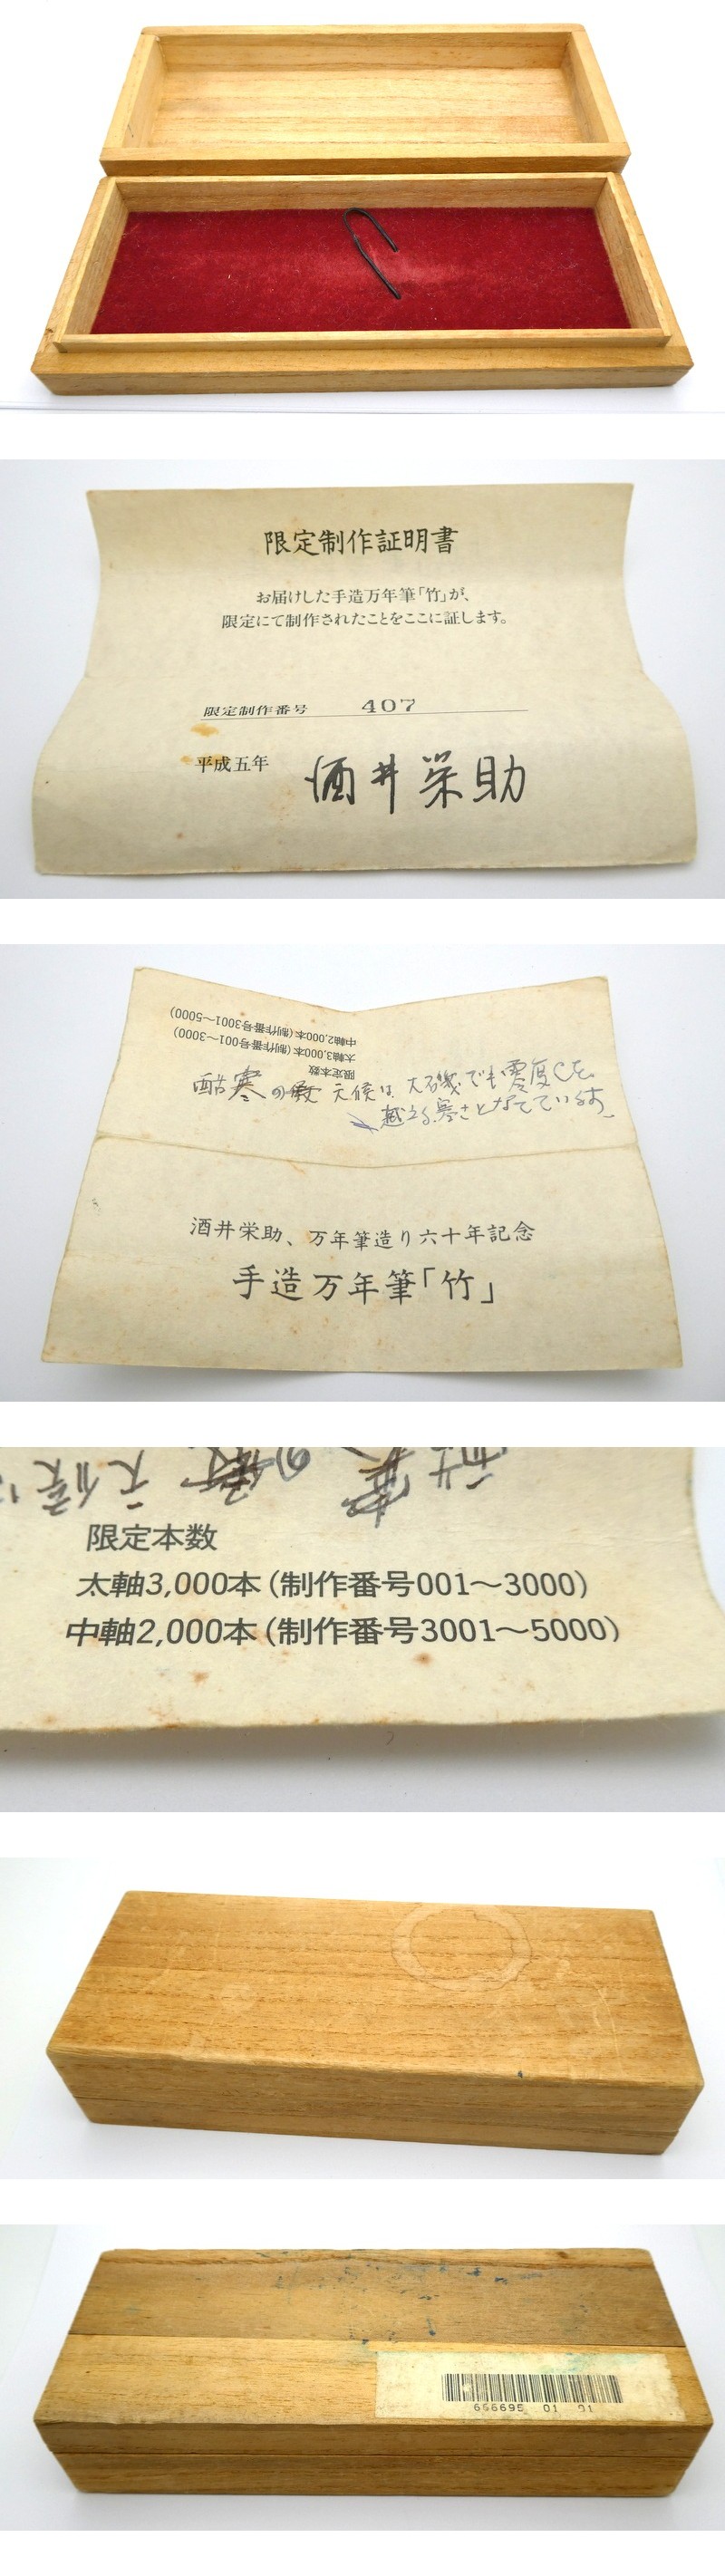 限定制作証明書
お届けした手造万年筆「竹」が、
限定にて制作されたことをここに証します。
限定制作番号 407
平成五年 酒井栄助
限定本数
太軸3,000本(制作番号001〜3000)
中軸2,000本(制作番号3001〜5000)
酷寒の 天候は 大磯でも零度Cを
越える寒さとなっています
酒井栄助、万年筆造り六十年記念
手造万年筆「竹」
天候 の 寒 酷
限定本数
太軸3,000本(制作番号001〜3000)
中軸2,000本(制作番号3001〜5000)
666695 01 01